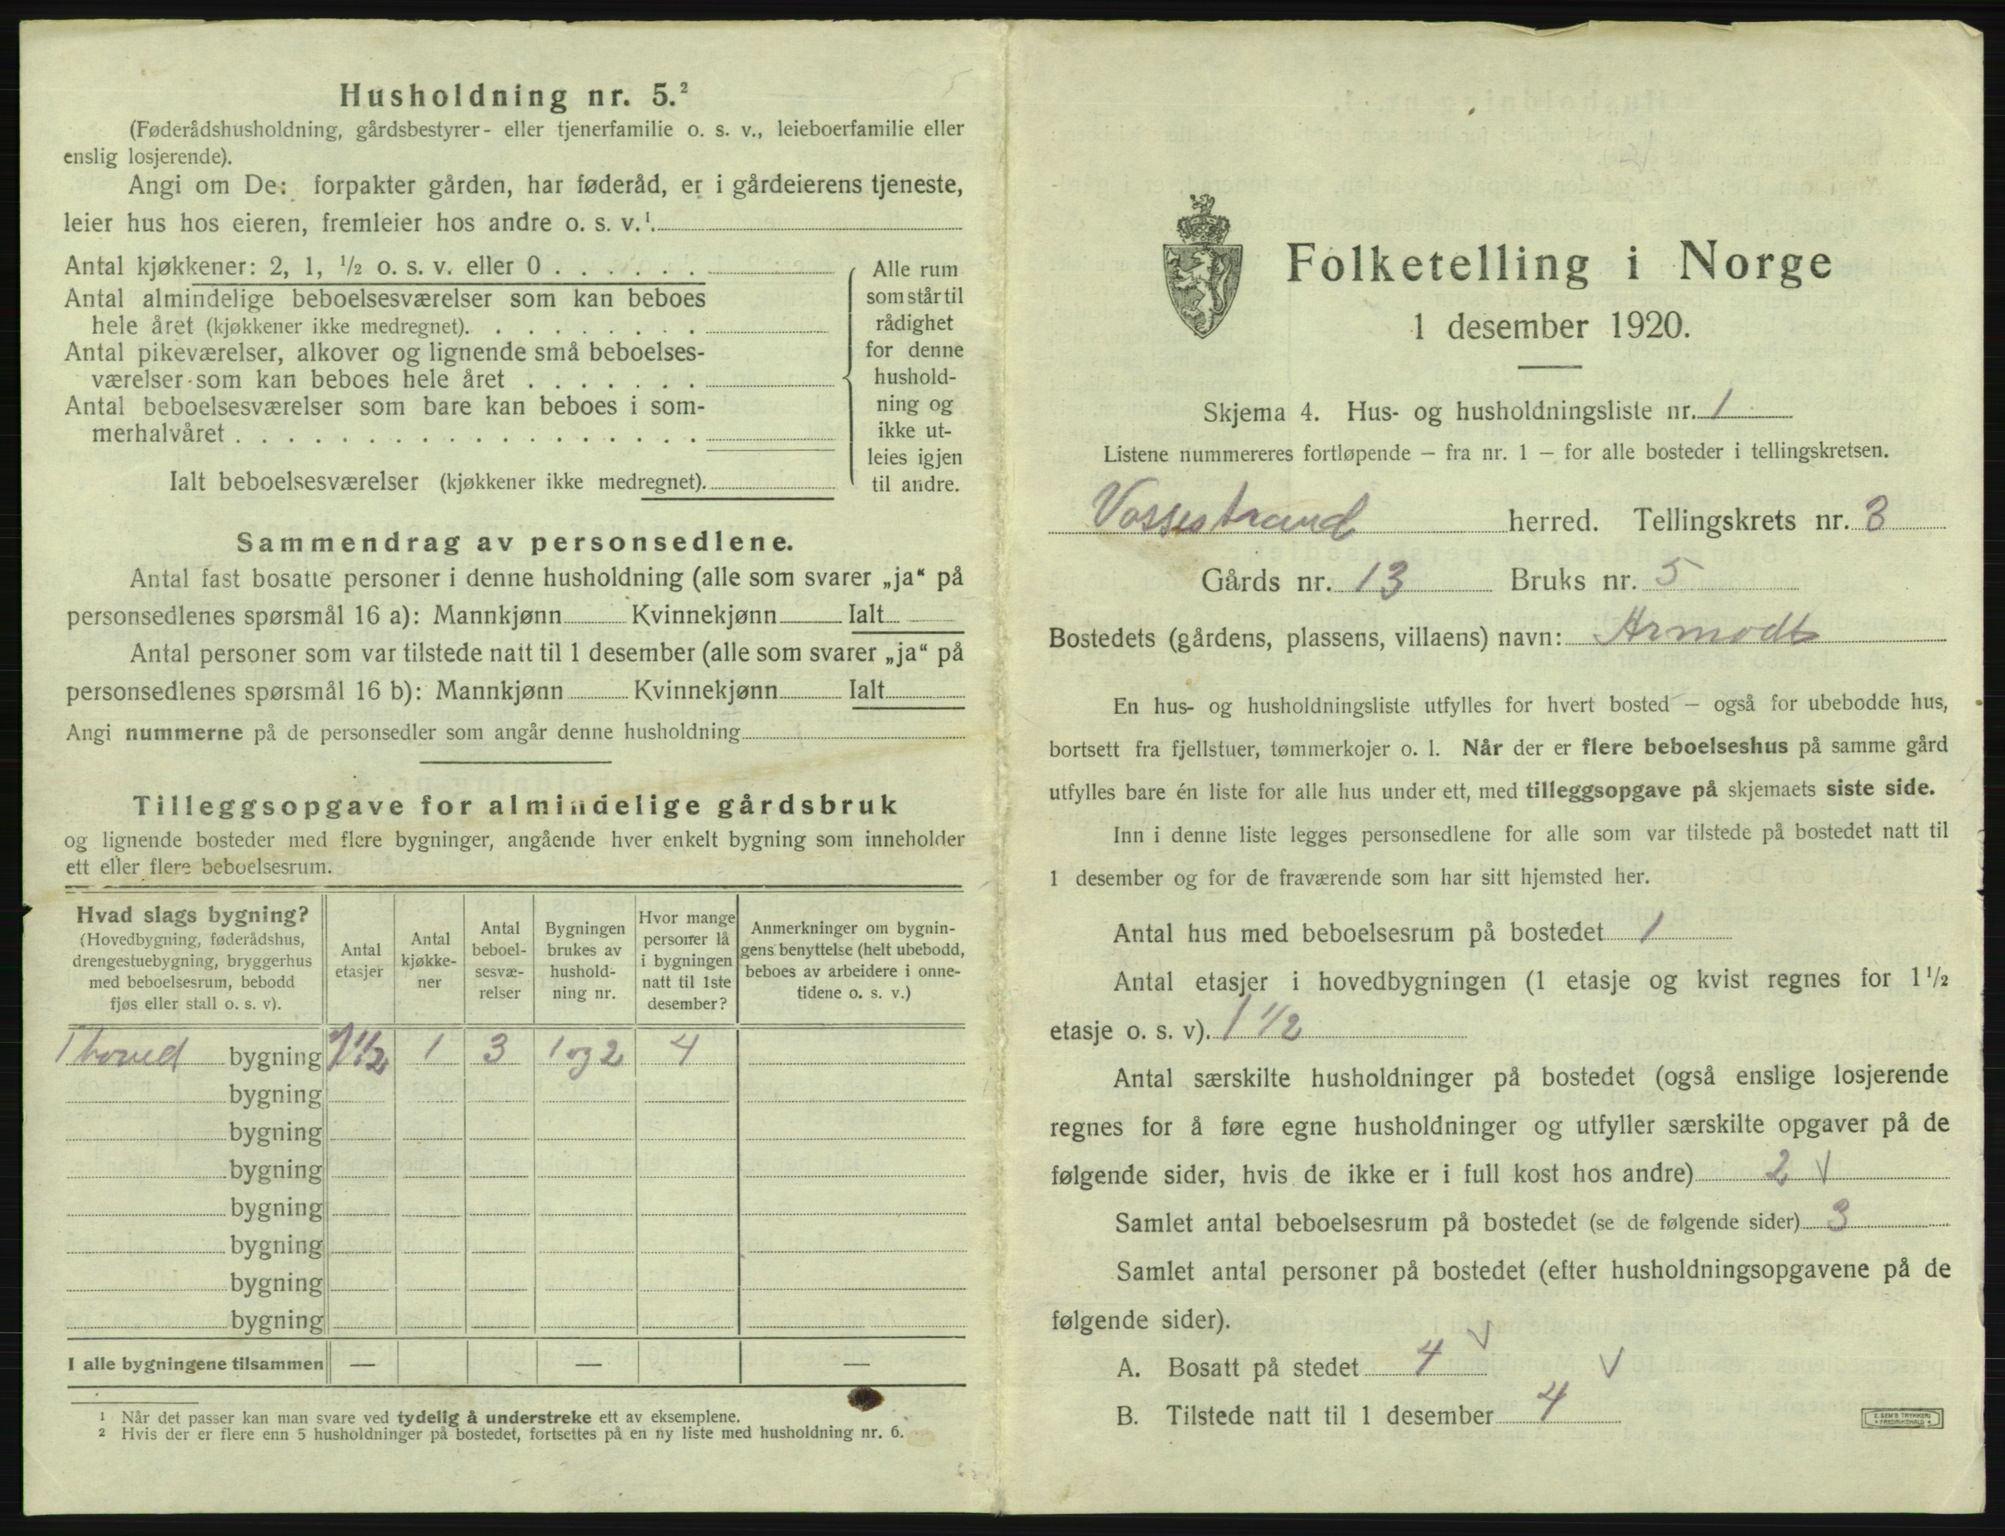 Husholdning nr. 5.²
(Føderådshusholdning, gårdsbestyrer- eller tjenerfamilie o. s. v., leieboerfamilie eller
enslig losjerende).
Angi om De: forpakter gården, har føderåd, er i gårdeierens tjeneste,
leier hus hos eieren, fremleier hos andre o. s. v.¹.
Antal kjøkkener: 2, 1, ½ o. s. v. eller 0 . . . . . .
Antal almindelige beboelsesværelser som kan beboes
hele året (kjøkkener ikke medregnet). . . . . . . . .
Antal pikeværelser, alkover og lignende små beboelses-
værelser som kan beboes hele året . . . . . . .
Antal beboelsesværelser som bare kan beboes i som-
merhalvåret . . . . . . . . . . . . . . . . . .
Ialt beboelsesværelser (kjøkkener ikke medregnet).
Alle rum
som står til
rådighet
for denne
hushold-
ning og
ikke ut-
leies igjen
til andre.
Sammendrag av personsedlene.
Antal fast bosatte personer i denne husholdning (alle som svarer „ja“ på
personsedlenes spørsmål 16 a): Mannkjønn Kvinnekjønn Ialt
Antal personer som var tilstede natt til 1 desember (alle som svarer „ja“ på
personsedlenes spørsmål 16 b): Mannkjønn Kvinnekjønn Ialt
Angi nummerne på de personsedler som angår denne husholdning
Tilleggsopgave for almindelige gårdsbruk
og lignende bosteder med flere bygninger, angående hver enkelt bygning som inneholder
ett eller flere beboelsesrum.
Hvad slags bygning?
(Hovedbygning, føderådshus,
drengestuebygning, bryggerhus
med beboelsesrum, bebodd
fjøs eller stall o. s. v).
Antal
etasjer
Antal
kjøkke-
ner
Antal
beboel-
sesvæ-
relser
Bygningen
brukes av
hushold-
ning nr.
Hvor mange
personer lå
i bygningen
natt til 1ste
desember?
Anmerkninger om bygnin-
gens benyttelse (helt ubebodd,
beboes av arbeidere i onne-
tidene o. s. v.)
1 hoved bygning 1½ 1 3 1 og 2 4
bygning
bygning
bygning
bygning
bygning
bygning
bygning
I alle bygningene tilsammen — — —
¹ Når det passer kan man svare ved tydelig å understreke ett av eksemplene.
² Hvis der er flere enn 5 husholdninger på bostedet, fortsettes på en ny liste med husholdning nr. 6.
Folketelling i Norge
1 desember 1920.
Skjema 4. Hus- og husholdningsliste nr. 1
Listene nummereres fortløpende – fra nr. 1 – for alle bosteder i tellingskretsen.
Vossestrand herred. Tellingskrets nr. 3
Gårds nr. 13 Bruks nr. 5
Bostedets (gårdens, plassens, villaens) navn: Armodt
En hus- og husholdningsliste utfylles for hvert bosted – også for ubebodde hus,
bortsett fra fjellstuer, tømmerkojer o. l. Når der er flere beboelseshus på samme gård
utfylles bare én liste for alle hus under ett, med tilleggsopgave på skjemaets siste side.
Inn i denne liste legges personsedlene for alle som var tilstede på bostedet natt til
1 desember og for de fraværende som har sitt hjemsted her.
Antal hus med beboelsesrum på bostedet 1
Antal etasjer i hovedbygningen (1 etasje og kvist regnes for 1½
etasje o. s. v). 1½
Antal særskilte husholdninger på bostedet (også enslige losjerende
regnes for å føre egne husholdninger og utfyller særskilte opgaver på de
følgende sider, hvis de ikke er i full kost hos andre) 2 √
Samlet antal beboelsesrum på bostedet (se de følgende sider) 3
Samlet antal personer på bostedet (efter husholdningsopgavene på de
følgende sider).
A. Bosatt på stedet 4 √ √
B. Tilstede natt til 1 desember 4